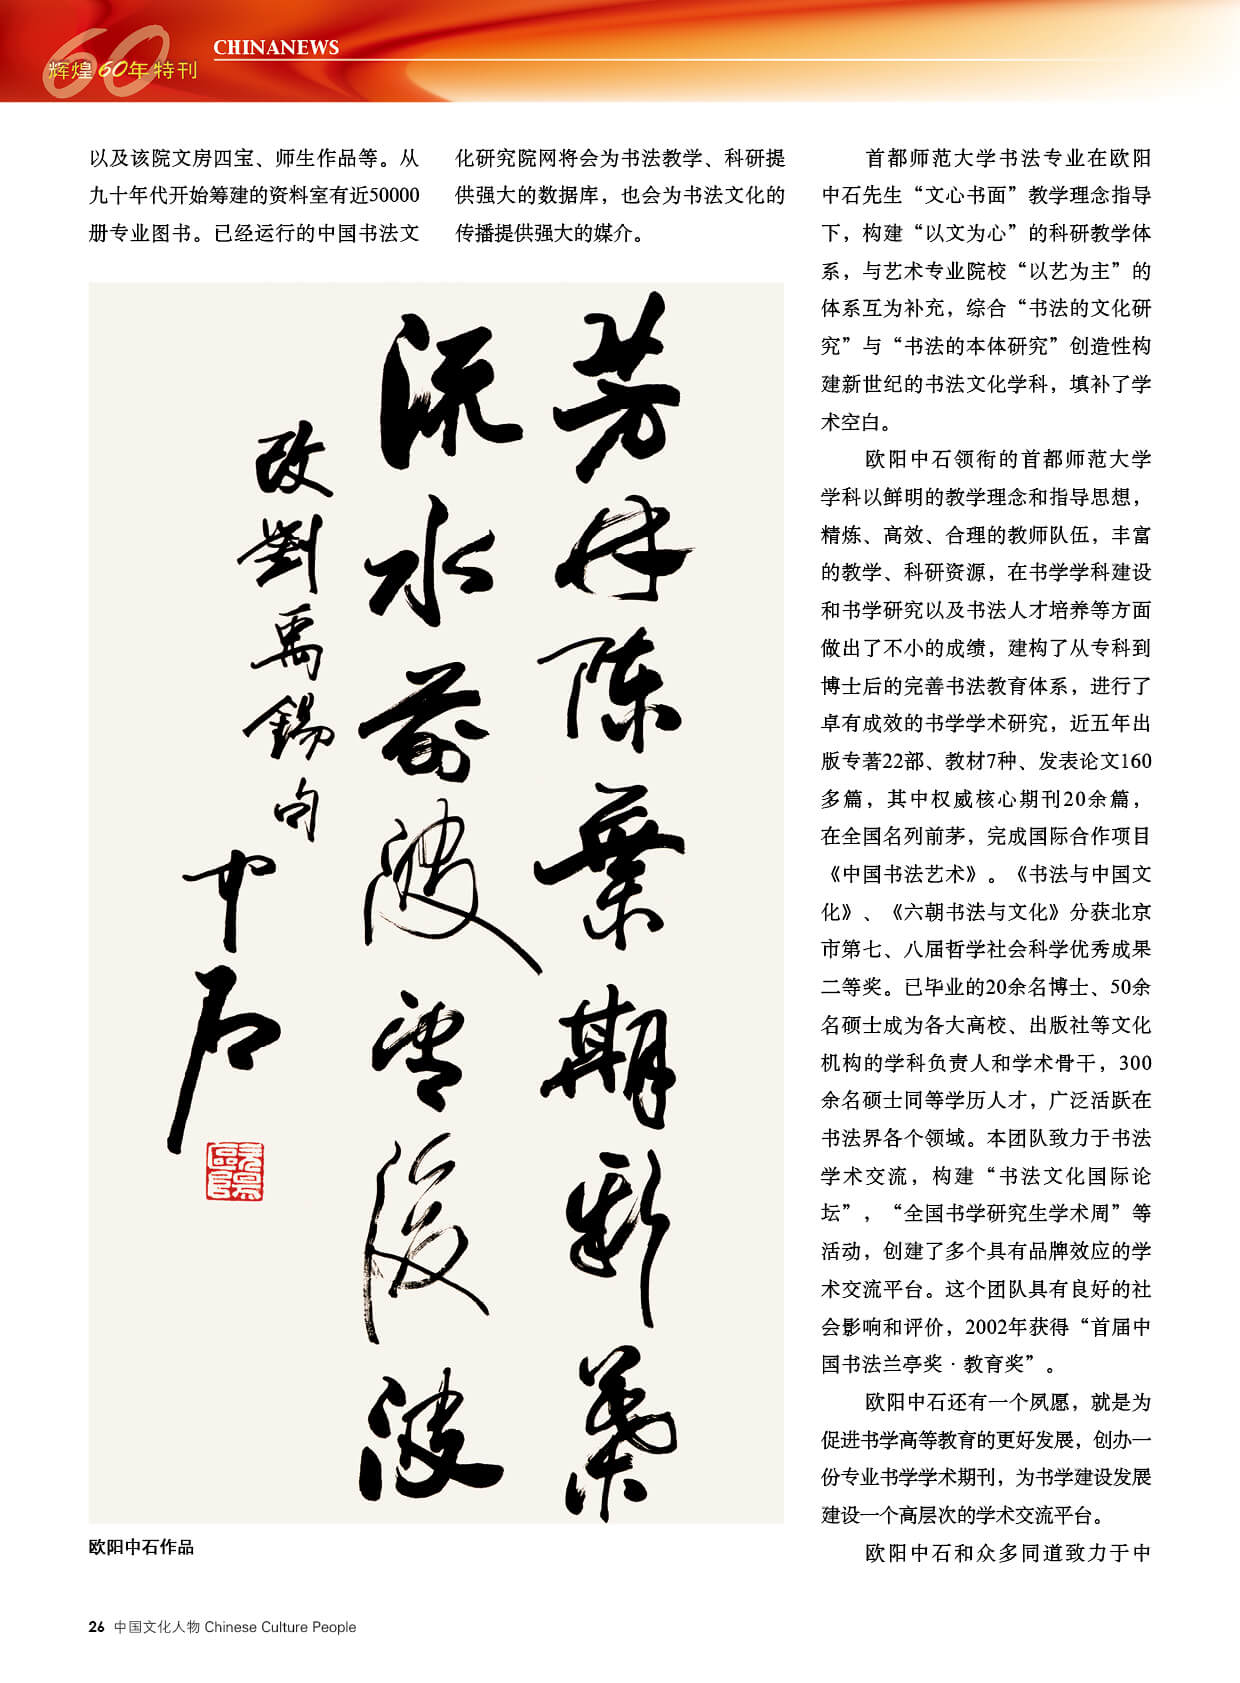 60
辉煌60年特刊
CHINANEWS
以及该院文房四宝、师生作品等。从
九十年代开始筹建的资料室有近50000
册专业图书。已经运行的中国书法文
化研究院网将会为书法教学、科研提
供强大的数据库，也会为书法文化的
传播提供强大的媒介。
芳林陳葉期新葉
流水前波望後波
改劉禹錫句
中石
欧阳中石作品
首都师范大学书法专业在欧阳
中石先生“文心书面”教学理念指导
下，构建“以文为心”的科研教学体
系，与艺术专业院校“以艺为主”的
体系互为补充，综合“书法的文化研
究”与“书法的本体研究”创造性构
建新世纪的书法文化学科，填补了学
术空白。
欧阳中石领衔的首都师范大学
学科以鲜明的教学理念和指导思想，
精炼、高效、合理的教师队伍，丰富
的教学、科研资源，在书学学科建设
和书学研究以及书法人才培养等方面
做出了不小的成绩，建构了从专科到
博士后的完善书法教育体系，进行了
卓有成效的书学学术研究，近五年出
版专著22部、教材7种、发表论文160
多篇，其中权威核心期刊20余篇，
在全国名列前茅，完成国际合作项目
《中国书法艺术》。《书法与中国文
化》、《六朝书法与文化》分获北京
市第七、八届哲学社会科学优秀成果
二等奖。已毕业的20余名博士、50余
名硕士成为各大高校、出版社等文化
机构的学科负责人和学术骨干，300
余名硕士同等学历人才，广泛活跃在
书法界各个领域。本团队致力于书法
学术交流，构建“书法文化国际论
坛”，“全国书学研究生学术周”等
活动，创建了多个具有品牌效应的学
术交流平台。这个团队具有良好的社
会影响和评价，2002年获得“首届中
国书法兰亭奖·教育奖”。
欧阳中石还有一个夙愿，就是为
促进书学高等教育的更好发展，创办一
份专业书学学术期刊，为书学建设发展
建设一个高层次的学术交流平台。
欧阳中石和众多同道致力于中
26 中国文化人物 Chinese Culture People